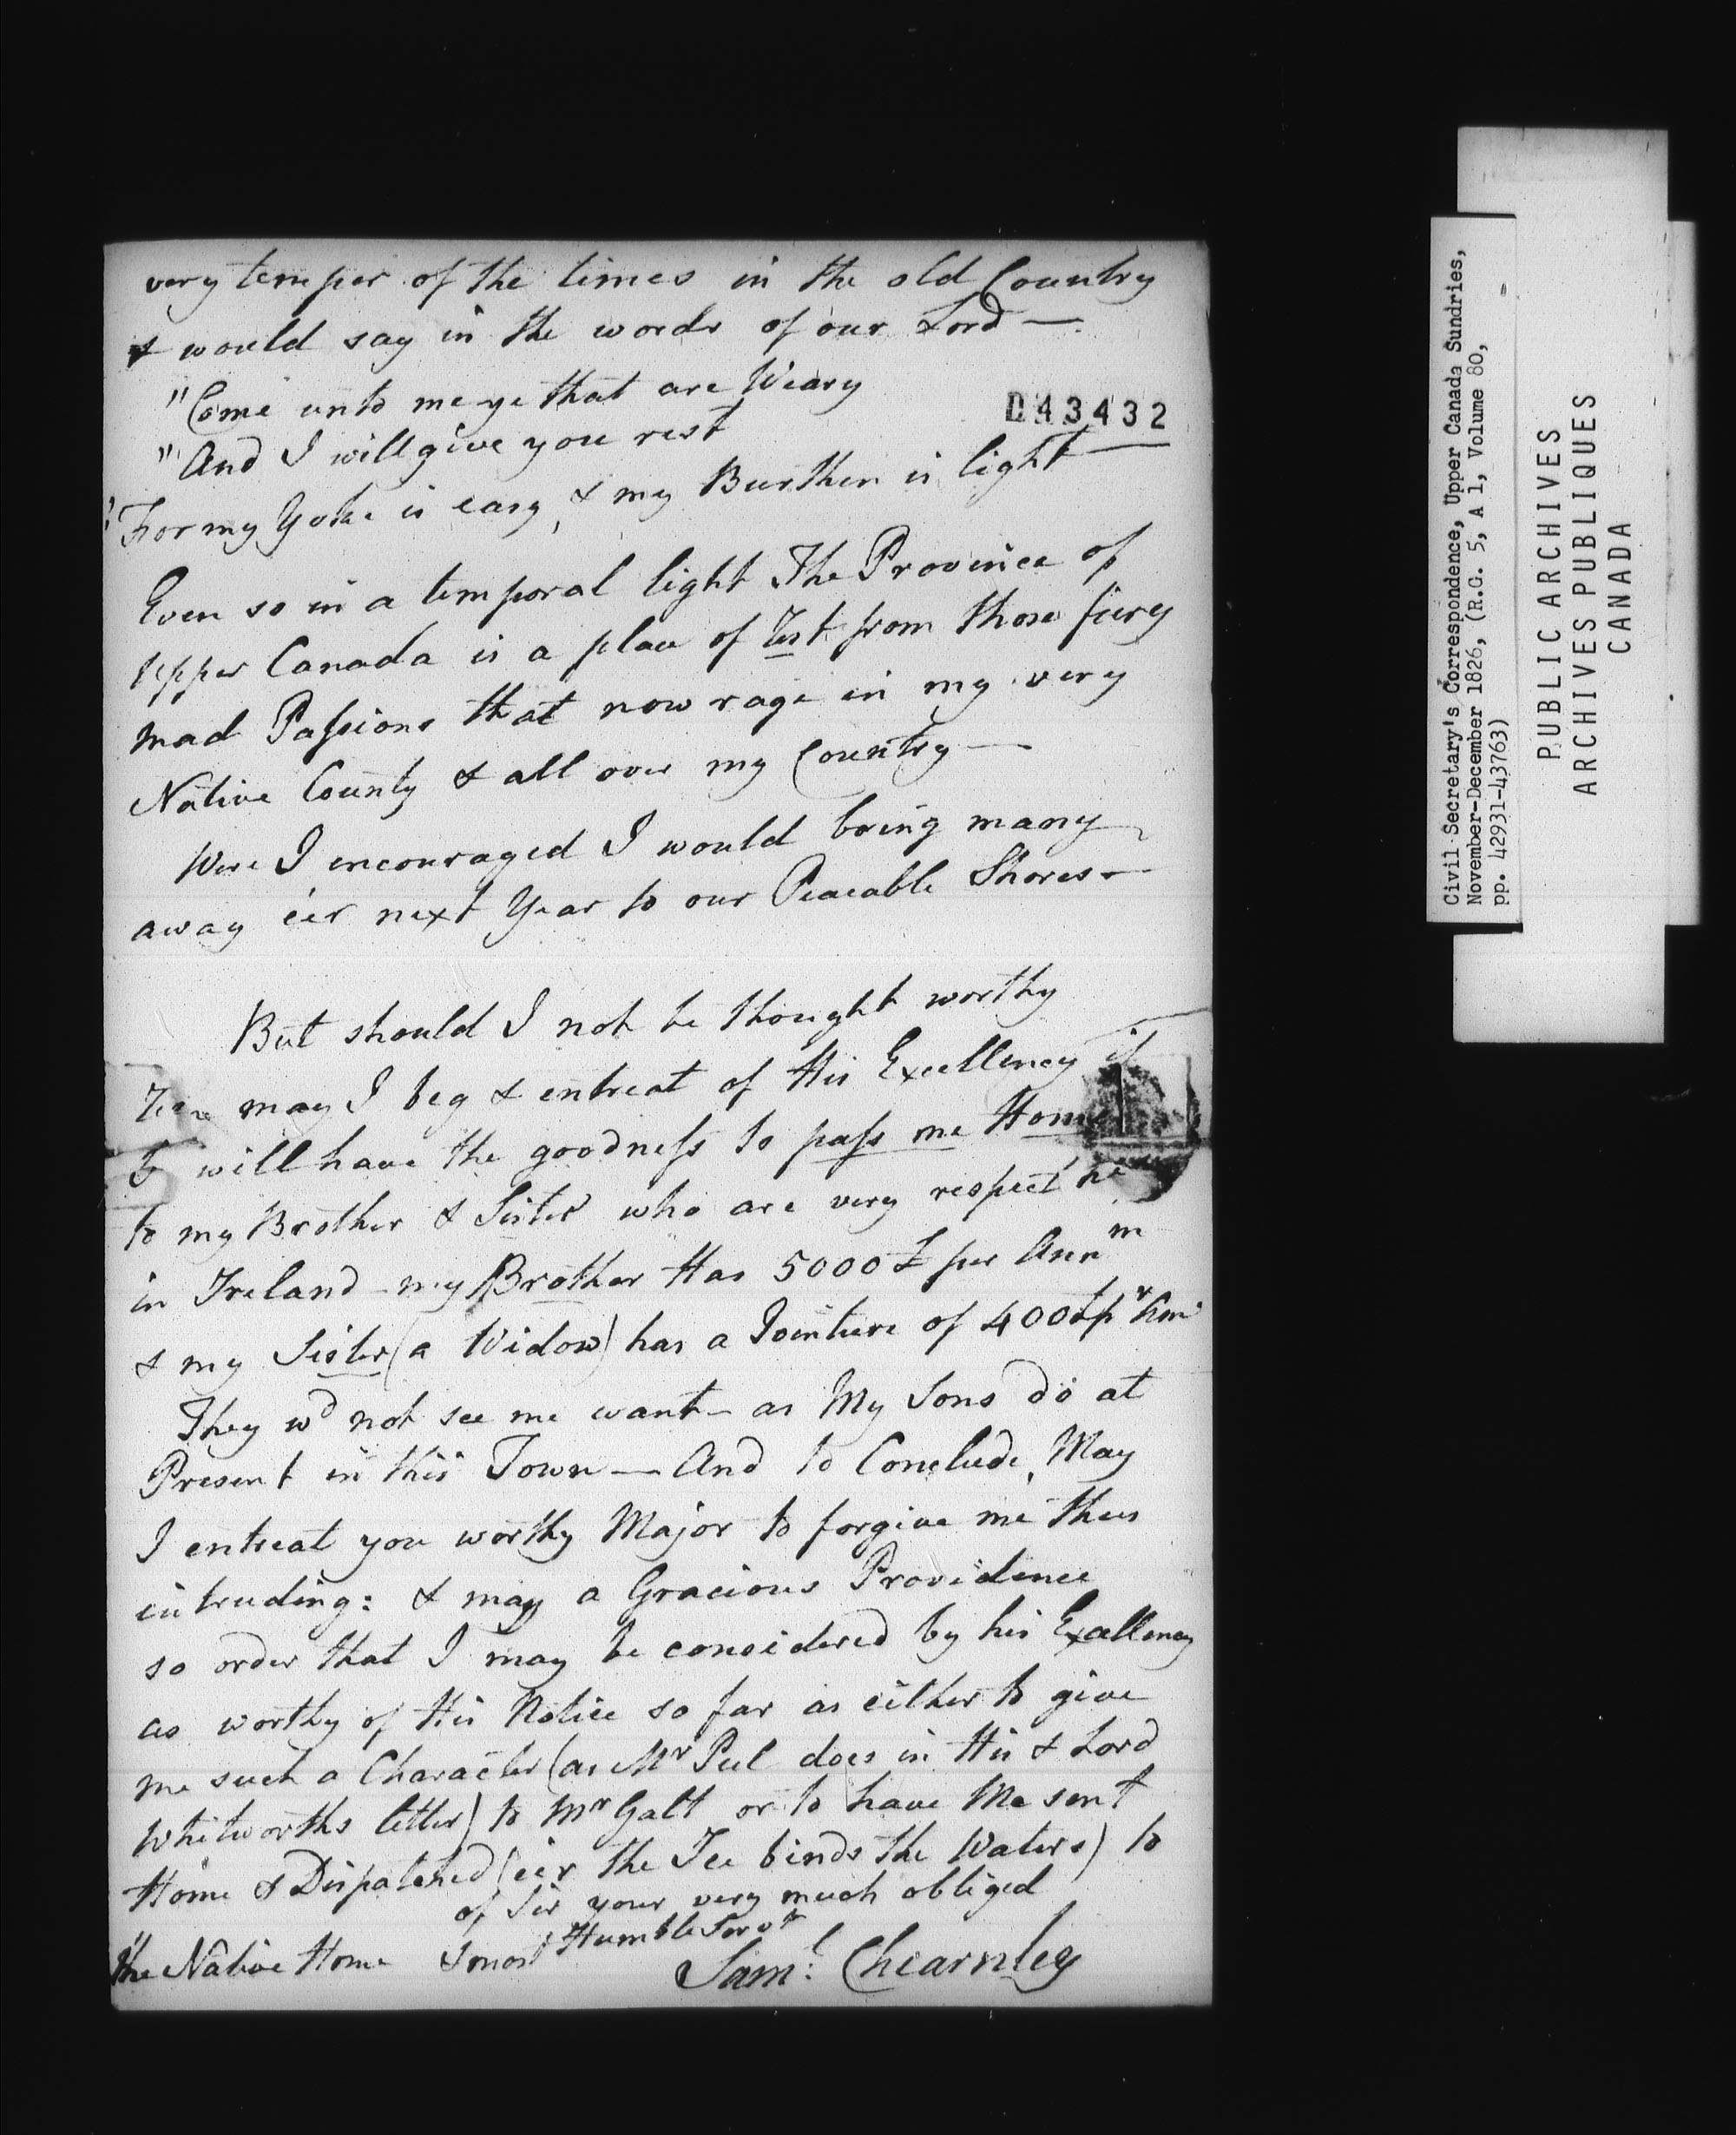 very temper of the times in the old Country
& would say in the words of our Lord —
"Come unto me ye that are Weary
D43432
"And I will give you rest
"For my Yoke is easy, & my Burthen is light —
Even so in a temporal light The Province of
Upper Canada is a place of Rest from those fiery
mad Passions that now rage in my very
Native County & all over my Country —
Were I encouraged I would bring many
away e'er next Year to our Peaceable Shores —
But should I not be thought worthy
may I beg & entreat of His Excellency if
will have the goodness to pass me Home
to my Brother & Sister who are very respect
in Ireland - my Brother Has 5000£ per Annm
& my Sister (a Widow) has a Jointure of 400£ pr
They wd not see me want - as My Sons do at
Present in this Town — And to Conclude, May
I entreat you worthy Major to forgive me thus
intruding: & may a Gracious Providence
so order that I may be considered by his Excellency
as worthy of His Notice so far as either to give
me such a Character (as Mr Peel does in His & Lord
Whitworths letter) to Mr Galt or to have Me sent
Home & Dispatched (e'er the Ice binds the Waters) to
of Sir your very much obliged
the Native Home & most Humble Servt
Saml. Chearnley
Civil Secretary's Correspondence, Upper Canada Sundries,
November-December 1826, (R.G. 5, A 1, Volume 80,
pp. 42931-43763)
PUBLIC ARCHIVES
ARCHIVES PUBLIQUES
CANADA